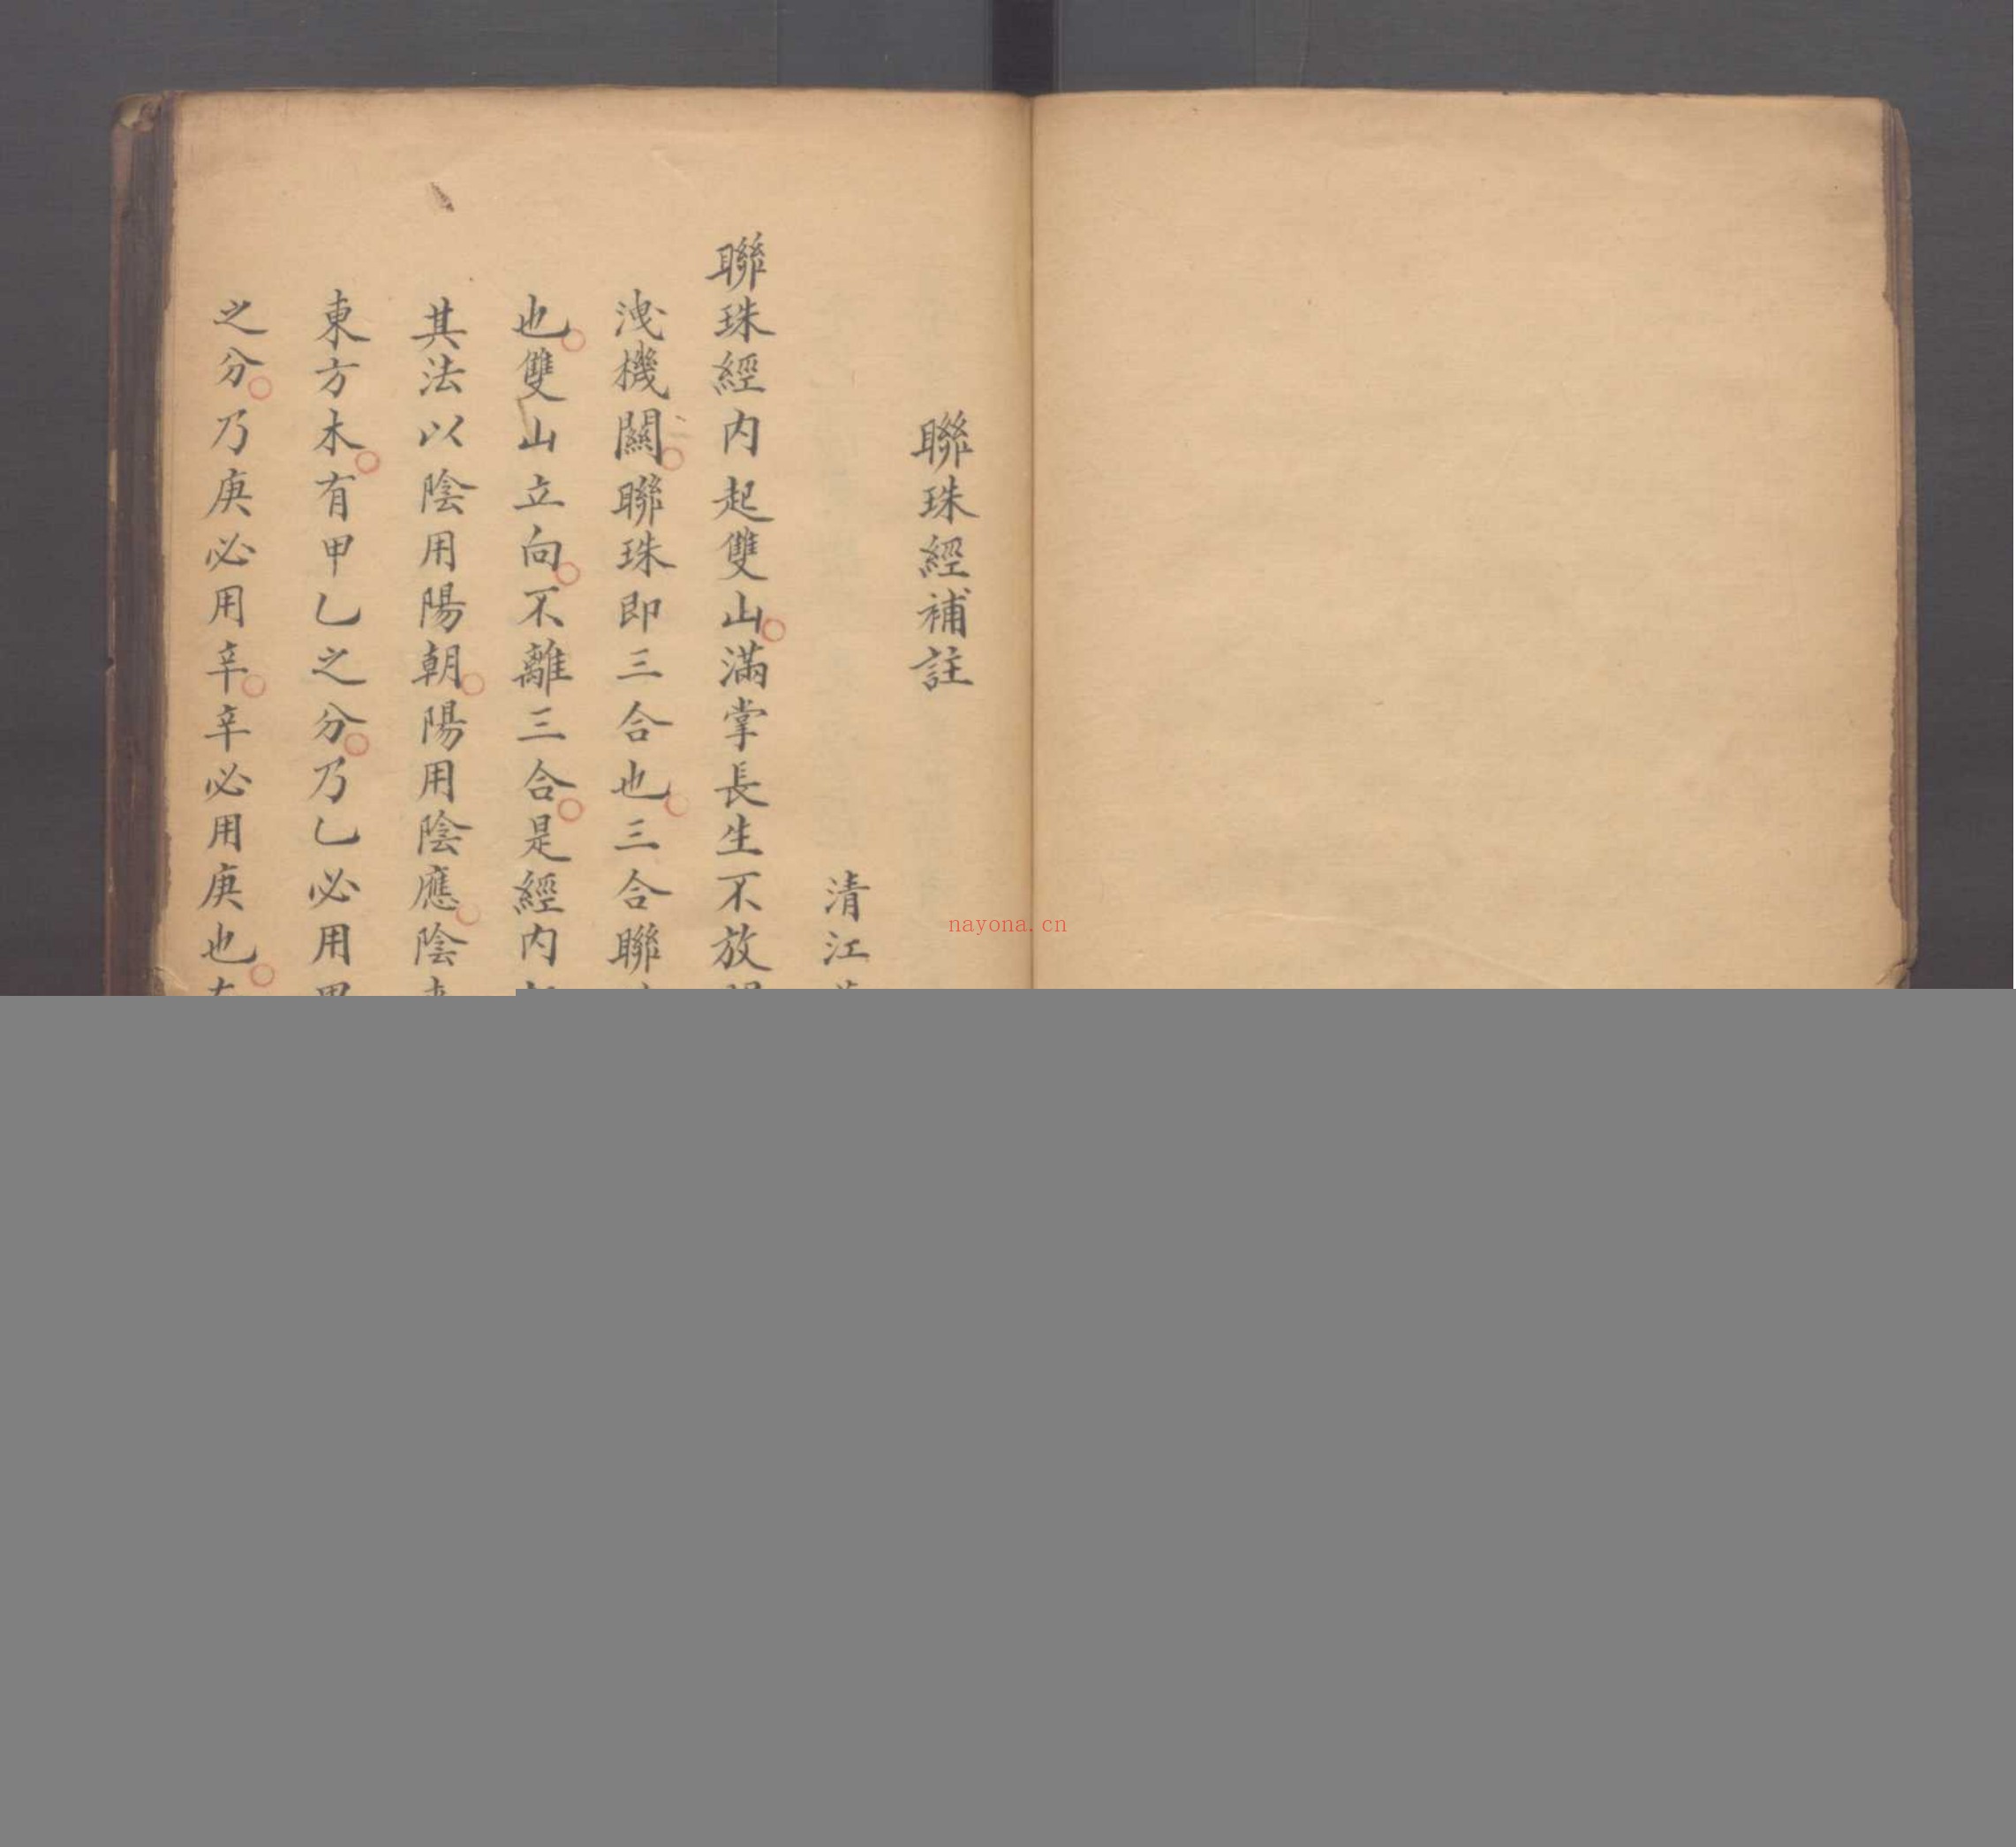 聯珠經補註
清江
聯珠經內起雙山滿掌長生不放
洩機關聯珠即三合也三合聯
也雙山立向不離三合是經內
其法以陰用陽朝陽用陰應陰
東方木有甲乙之分乃乙必用
之分乃庚必用辛辛必用庚也
nayona.cn